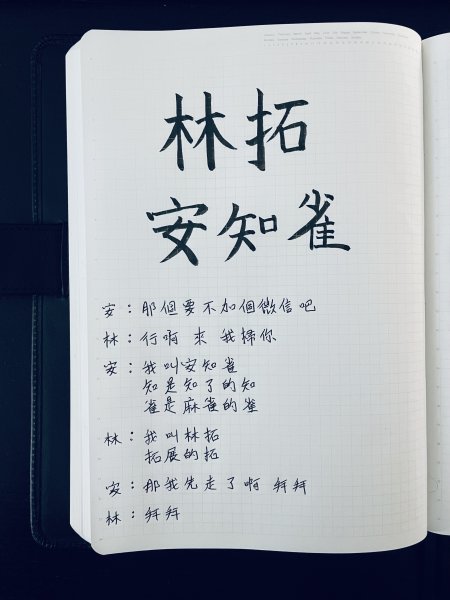 林拓
安知雀
安：那個要不加個微信吧
林：行啊 來 我掃你
安：我叫安知雀
知是知了的知
雀是麻雀的雀
林：我叫林拓
拓展的拓
安：那我先走了啊 拜拜
林：拜拜